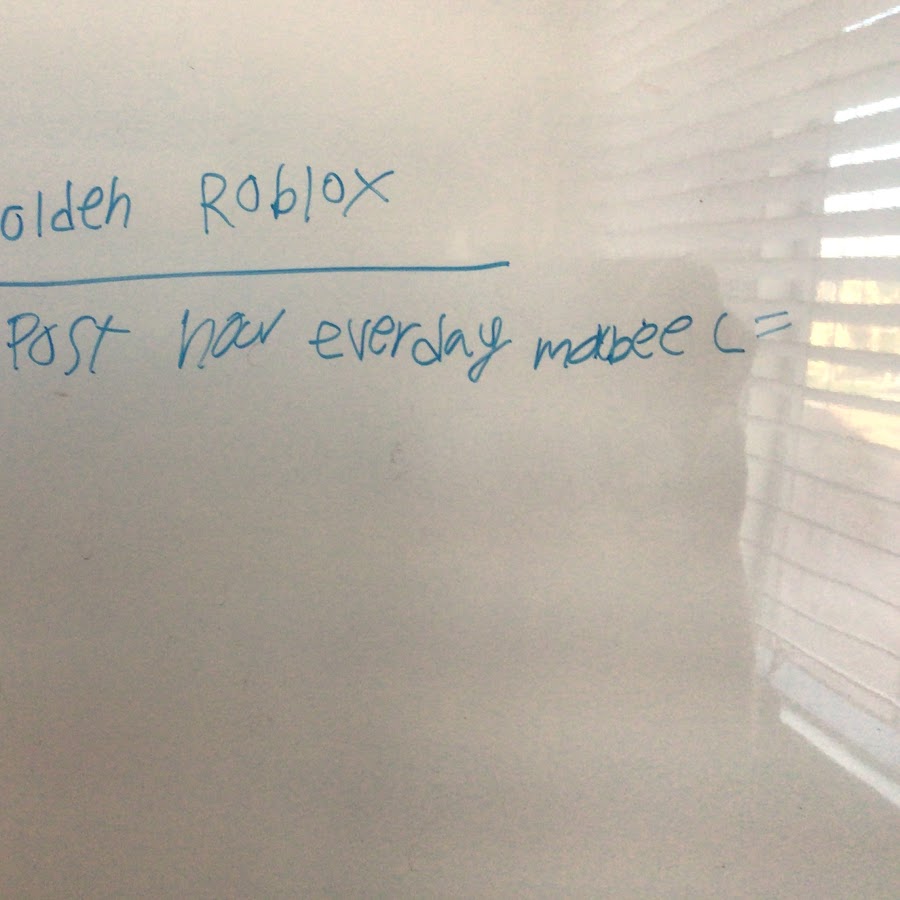 olden Roblox
Post now everday mabee c=